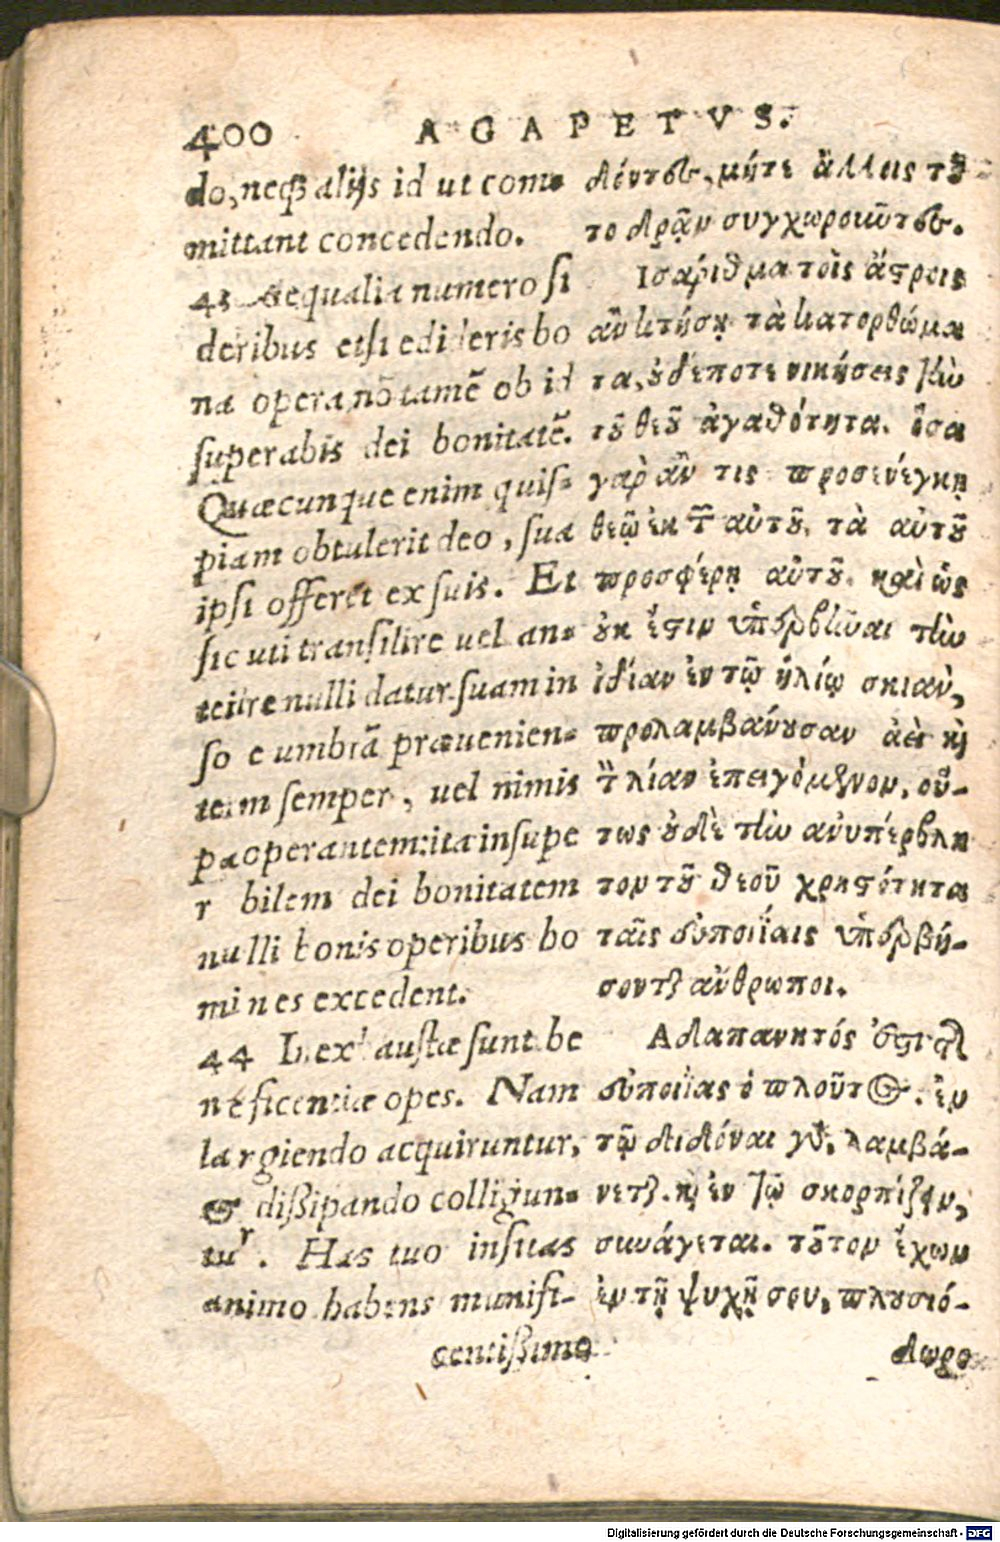 400 AGAPETVS.
do, neq́ʒ alijs id ut com-
mittant concedendo.
43 Aequalia numero si
deribus etsi edideris bo
na opera, nō tamē ob id
superabis dei bonitatē.
Quæcunque enim quis-
piam obtulerit deo, sua
ipsi offeret ex suis. Et
sic uti transilire uel an-
teire nulli datur suam in
so e umbrā præuenien-
tem semper, uel nimis
p operantem: ita insupe
r bilem dei bonitatem
nulli bonis operibus ho
mines excedent.
44 Inexhaustæ sunt be
neficentiæ opes. Nam
largiendo acquiruntur,
& dißipando colligun-
tur. Has tuo insitas
animo habens munifi-
centißimo
δόντας, μήτε ἄλλοις τȣ̃-
το δρᾷν συγχωροιῶτας.
Ισάριθμα τοῖς ἄϛροις
ἂν κτήσῃ τὰ κατορθώμα
τα, ȣ̓δέποτε νικήσεις τὴν
τȣ̃ θεȣ̃ ἀγαθότητα. ὅσα
γὰρ ἄν τις προσενέγκῃ
θεῷ ἐκ τ̃ αὐτȣ̃, τὰ αὐτȣ̃
προσφέρῃ αὐτȣ̃. καὶ ὡς
ȣ̓κ ἔϛιν ὑπερβῆναι τὴν
ἰδίαν ἐν τῷ ἡλίῳ σκιὰν,
προλαμβάνȣσαν ἀεὶ κỳ
τ̀ λίαν ἐπειγόμενον, οὕ-
τως ȣ̓δὲ τὴν ἀνυπέρβλη
τον τȣ̃ θεοῦ χρηϛότητα
ταῖς εὐποιΐαις ὑπερβή-
σονται ἄνθρωποι.
Αδαπανητός ἐϛι τῆς
εὐποιΐας ὁ πλοῦτος. ἐν
τῷ διδόναι γὸ, λαμβά-
νεται. κỳ ἐν τῷ σκορπίζειν,
συνάγεται. τȣ̃τον ἔχων
ἐν τῇ ψυχῇ σου, πλȣσιό-
δωρο
Digitalisierung gefördert durch die Deutsche Forschungsgemeinschaft - DFG